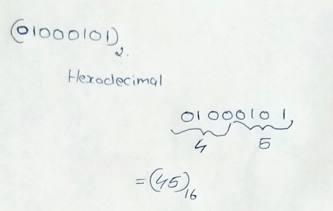 (01000101)₂.
Hexadecimal
01000101
4 5
= (45)₁₆